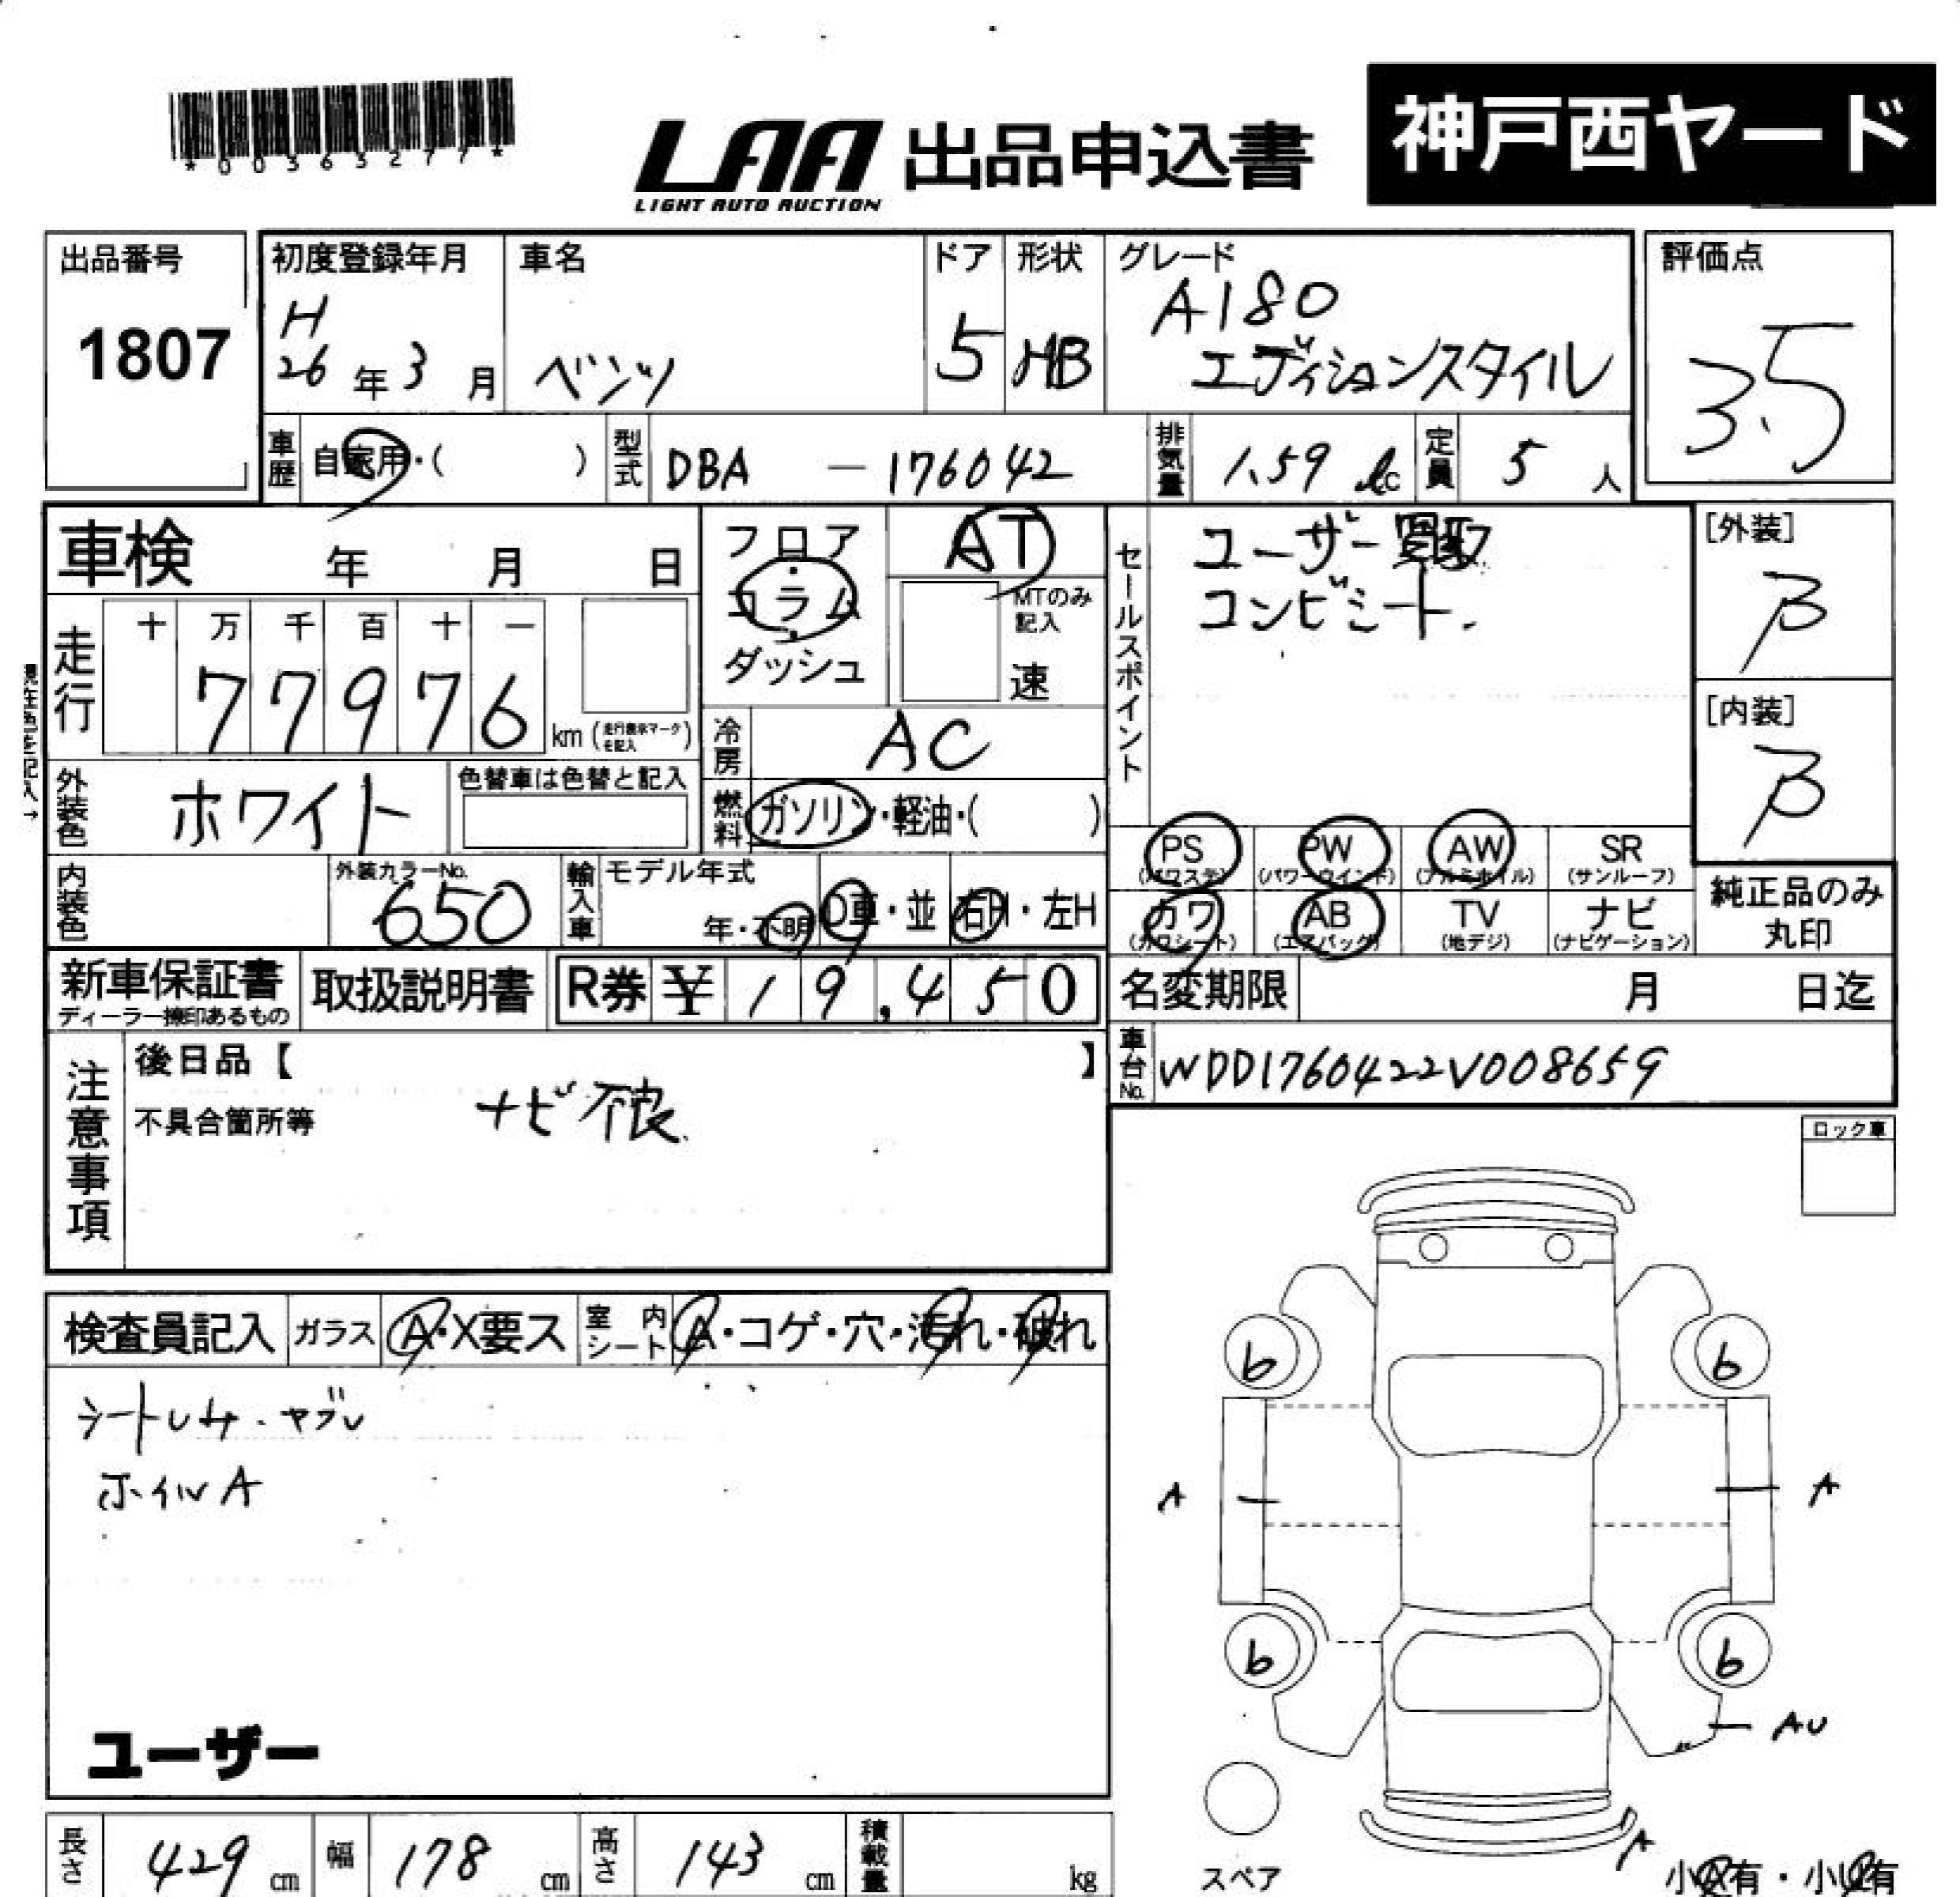 *00363277*
LAA 出品申込書
LIGHT AUTO AUCTION
神戸西ヤード
出品番号
1807
初度登録年月
H
26年3月
車名
ベンツ
ドア
5
形状
HB
グレード
A180
エディションスタイル
評価点
3.5
車歴 自家用・( )
型式 DBA-176042
排気量 1.59
定員 5人
車検 年 月 日
フロア・コラム・ダッシュ
AT
MTのみ記入
速
セールスポイント
ユーザー買取
コンビシート.
[外装]
β
[内装]
β
走行
十万千百十一
77976
km (走行表示マークを記入)
冷房 AC
外装色 ホワイト
色替車は色替と記入
燃料 ガソリン・軽油・( )
内装色
外装カラーNo.
650
輸入車
モデル年式
年・不明
D車・並
右H・左H
PS (パワステ)
PW (パワーウインド)
AW (アルミホイル)
SR (サンルーフ)
カワ (カワシート)
AB (エアバッグ)
TV (地デジ)
ナビ (ナビゲーション)
純正品のみ
丸印
新車保証書
ディーラー捺印あるもの
取扱説明書
R券 ¥19,450
名変期限 月 日迄
車台No. WDD1760422V008659
注意事項
後日品【 】
不具合箇所等
ナビ不良.
ロック車
検査員記入
ガラス A・X要ス
室内シート A・コゲ・穴・汚れ・破れ
ホイルA
b b
A A
b b
AU
A
ユーザー
スペア
小A有・小U有
長さ 429 cm
幅 178 cm
高さ 143 cm
積載量 kg